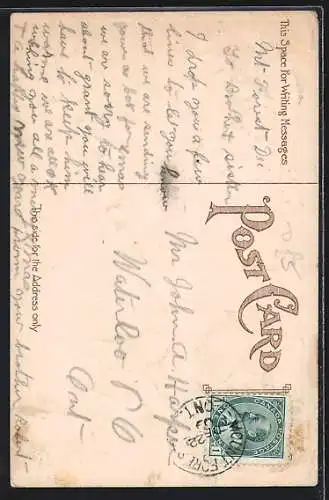 This Space for Writing Messages
Mt Forest Dec
To Brother & sister
I drop you a few
lines to let you know
that we are sending
you a box for xmas
we are sorry to hear
about grant you will
have to keep him
warm we are all OK
wishing you all a merry xmas
& a happy new year from your brother
This side for the Address only
POST CARD
Mr John A Harper
Waterloo P O
Ont
MOUNT FOREST
DE 22
ONT
1